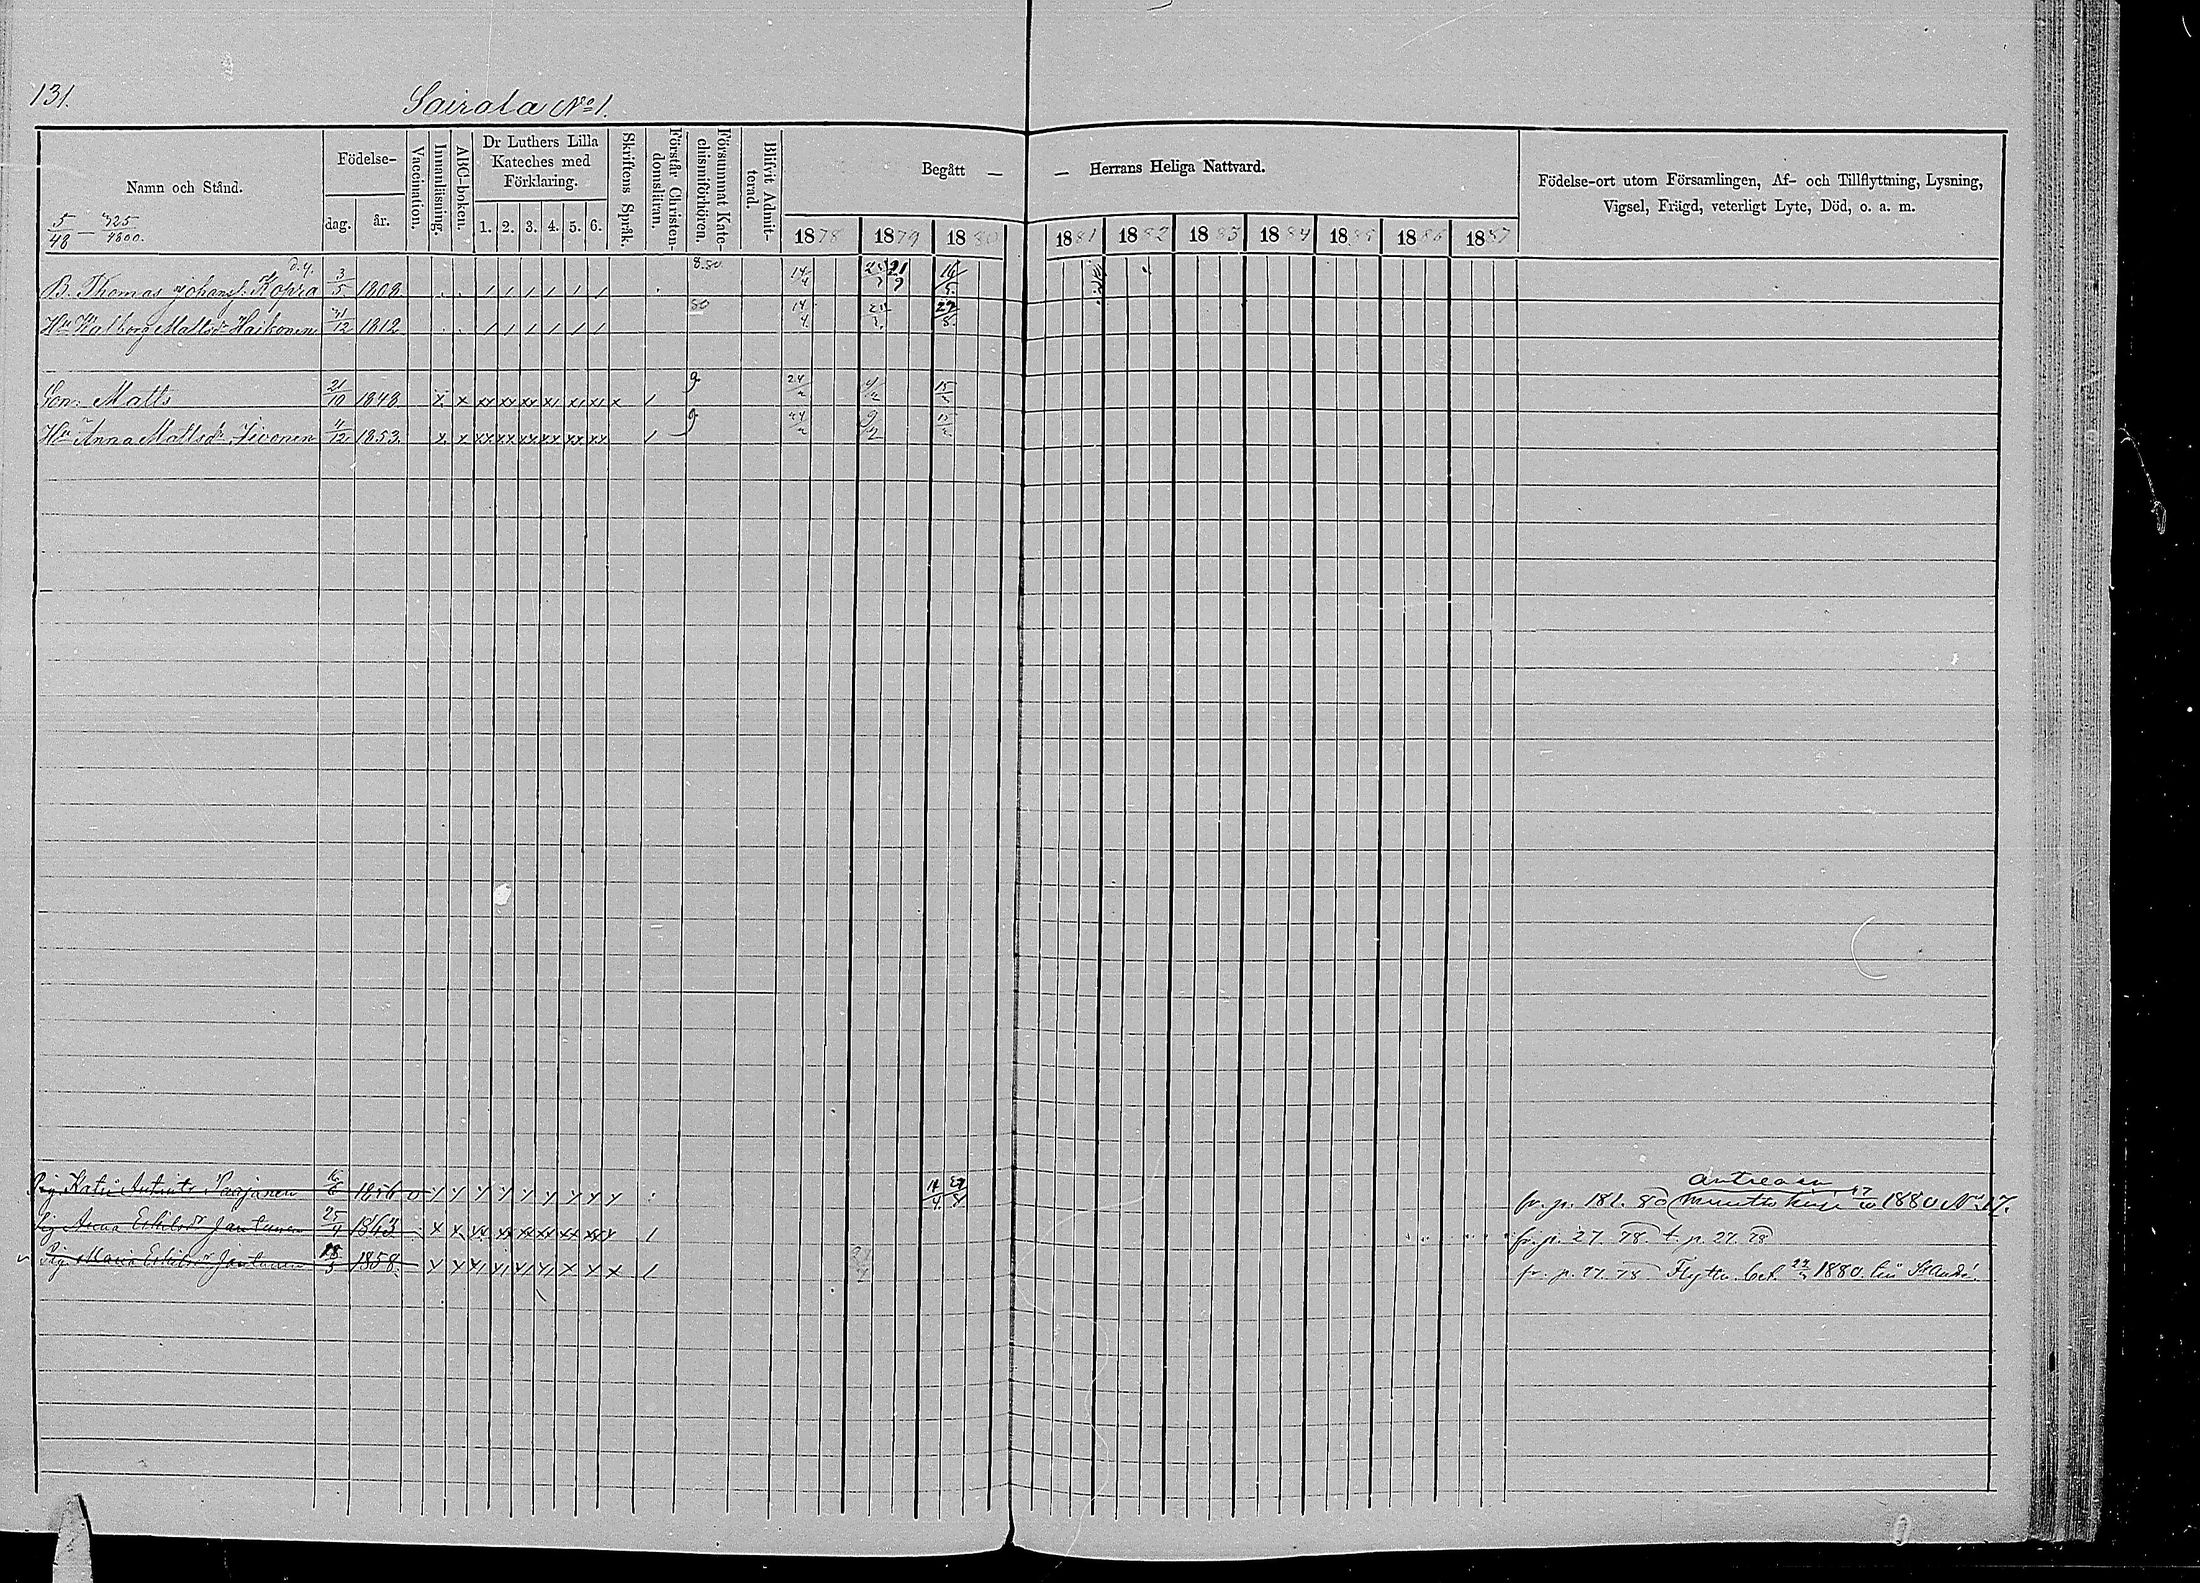 131.
Sairala No 1.
Namn och Stånd.
5/48 — 325/4800.
Födelse-
dag. år.
Vaccination.
Innanläsning.
ABC-boken.
Dr Luthers Lilla
Kateches med
Förklaring.
1. 2. 3. 4. 5. 6.
Skriftens Språk.
Förstår Christen-
domsläran.
Försummat Kate-
chismiförhören.
Blifvit Admit-
terad.
Begått — — Herrans Heliga Nattvard.
1878 1879 1880 1881 1882 1883 1884 1885 1886 1887
Födelse-ort utom Församlingen, Af- och Tillflyttning, Lysning,
Vigsel, Frägd, veterligt Lyte, Död, o. a. m.
B. Thomas Johansf. Kopra d.y. 3/5 1808 8.80 14/4 21/9 14/5
Hu Walborg Mattsdr Haikonen /12 1812 80 14/4 27/8
Son: Matts 21/10 1848 x x xx xx xx x1 x1 x1 x 1 g 24/2 9/2 15/2
Hu Anna Mattsdr Sivonen 4/12 1853 x x xx xx xx xx xx xx 1 g 24/2 9/2 15/2
Pig. Katri Antintr Paajanen 1856 fr. p. 181. 80 Antrean muutto kirja 1880 No 17.
Pig Anna Eskilsdr Jantunen 25/4 1863 x x xx xx xx xx xx 1 fr. p. 27. 78. t. p. 27. 78
Pig Maria Eskilsdr Jantunen 18/3 1858 1 fr. p. 27. 78 Flyttn. bet. 1880 till St André.